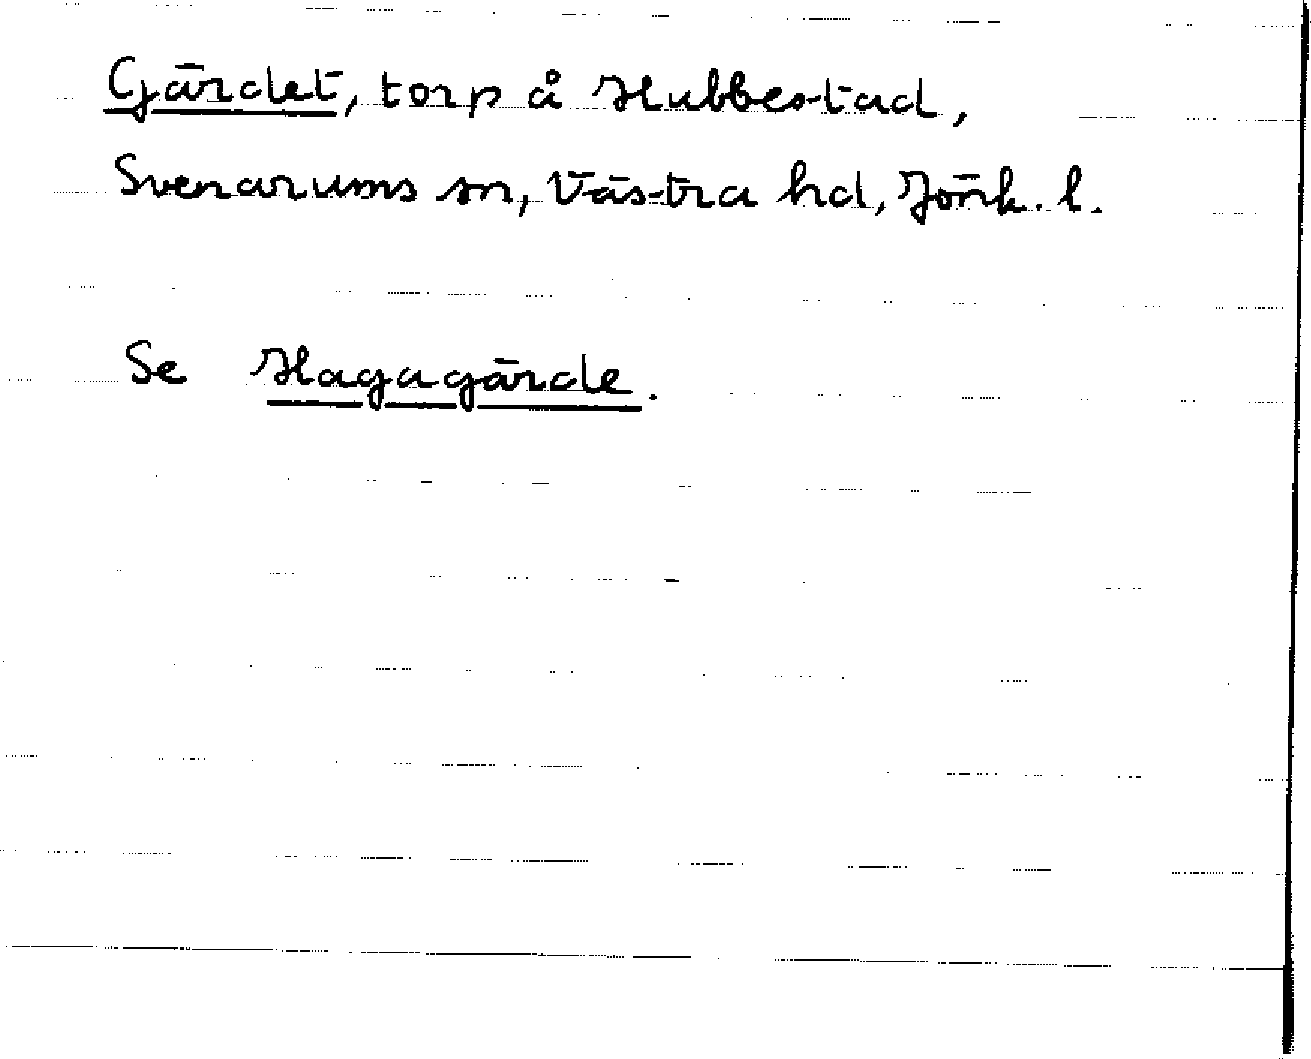 Gärdet, torp å Hubbestad,
Svenarums sn, Västra hd, Jönk. l.
Se Hagagärde.